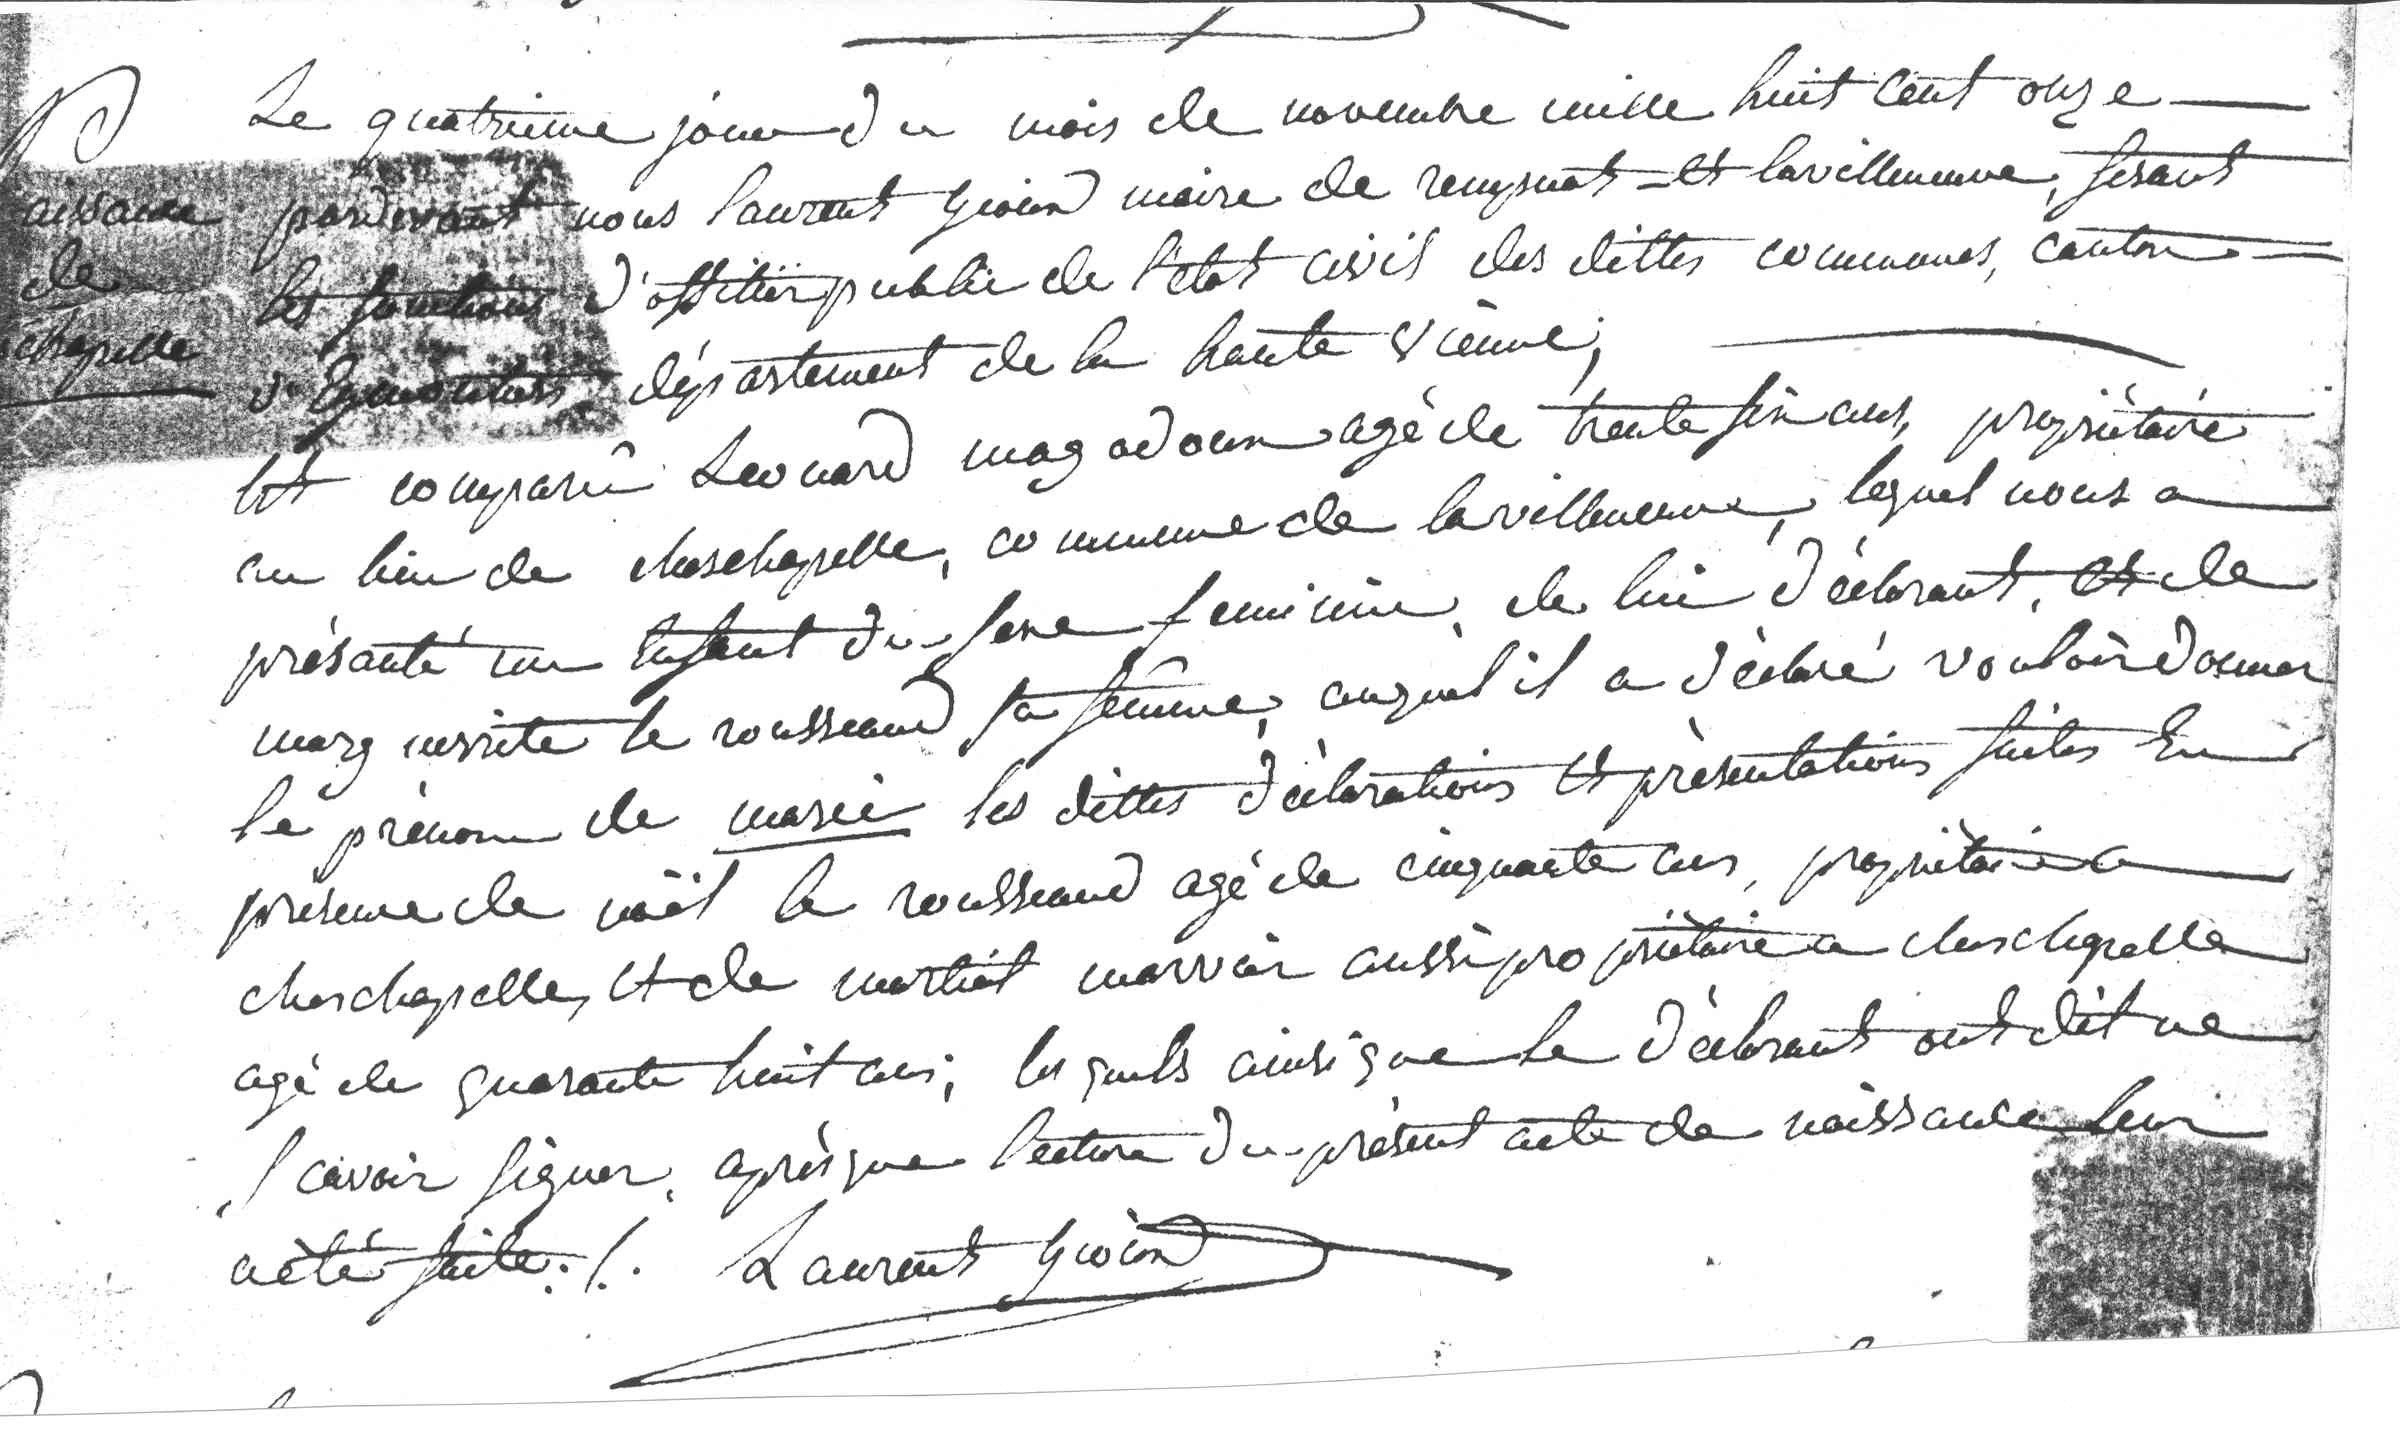 Le quatrieme jour du mois de novembre mille huit cent onze
naissance
de
chapelle
pardevant nous laurent Gioux maire de rempnat et lavilleneuve, fesant
les fonctions d'officier public de l'état civil des dittes communes, canton
d'Eymoutiers département de la haute viènne,
Est comparû Leonard magadoux agé de trente six ans, propriétaire
au lieu de cheschapelle, commune de lavilleneuve, lequel nous a
présanté un Enfant du sexe feminin, de lui déclarant, et de
margueritte le rousseaud sa fêmme, auquel il a déclaré vouloir donner
le prénom de marie les dittes déclarations et présentations faites En
présence de noël le rousseaud agé de cinquante ans, propriètaire a
cheschapelle, et de martial marvier aussi propriètaire a cheschapelle
agé de quarante huit ans, lesquels ainsi que le déclarant ont dit ne
scavoir signer, après que lecture du présent acte de naissance leur
a été faite ./. Laurent Gioux